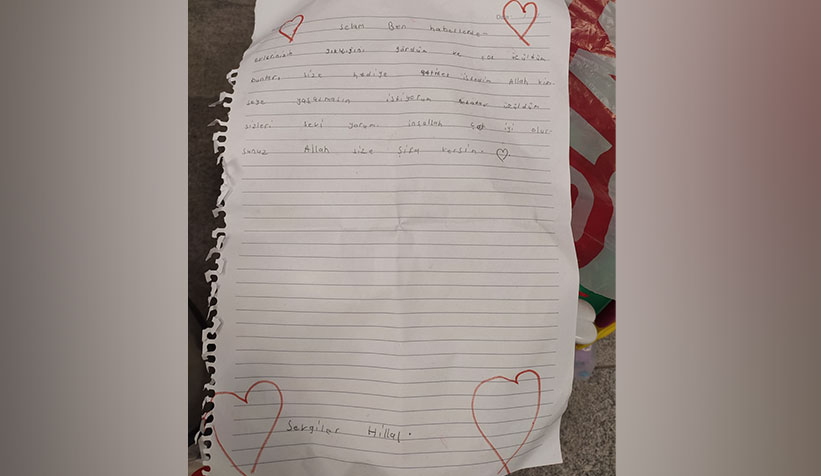 selam Ben haberlerde
evlerinizin yıkıldığını gördüm ve çok üzüldüm
bunları size hediye getirmek istedim Allah kim
seye yaşatmasın istiyorum üzüldüm
sizleri sevi yorum inşullah çok iyi olur
sunuz Allah size şifa versin.
Sevgiler Hillal.